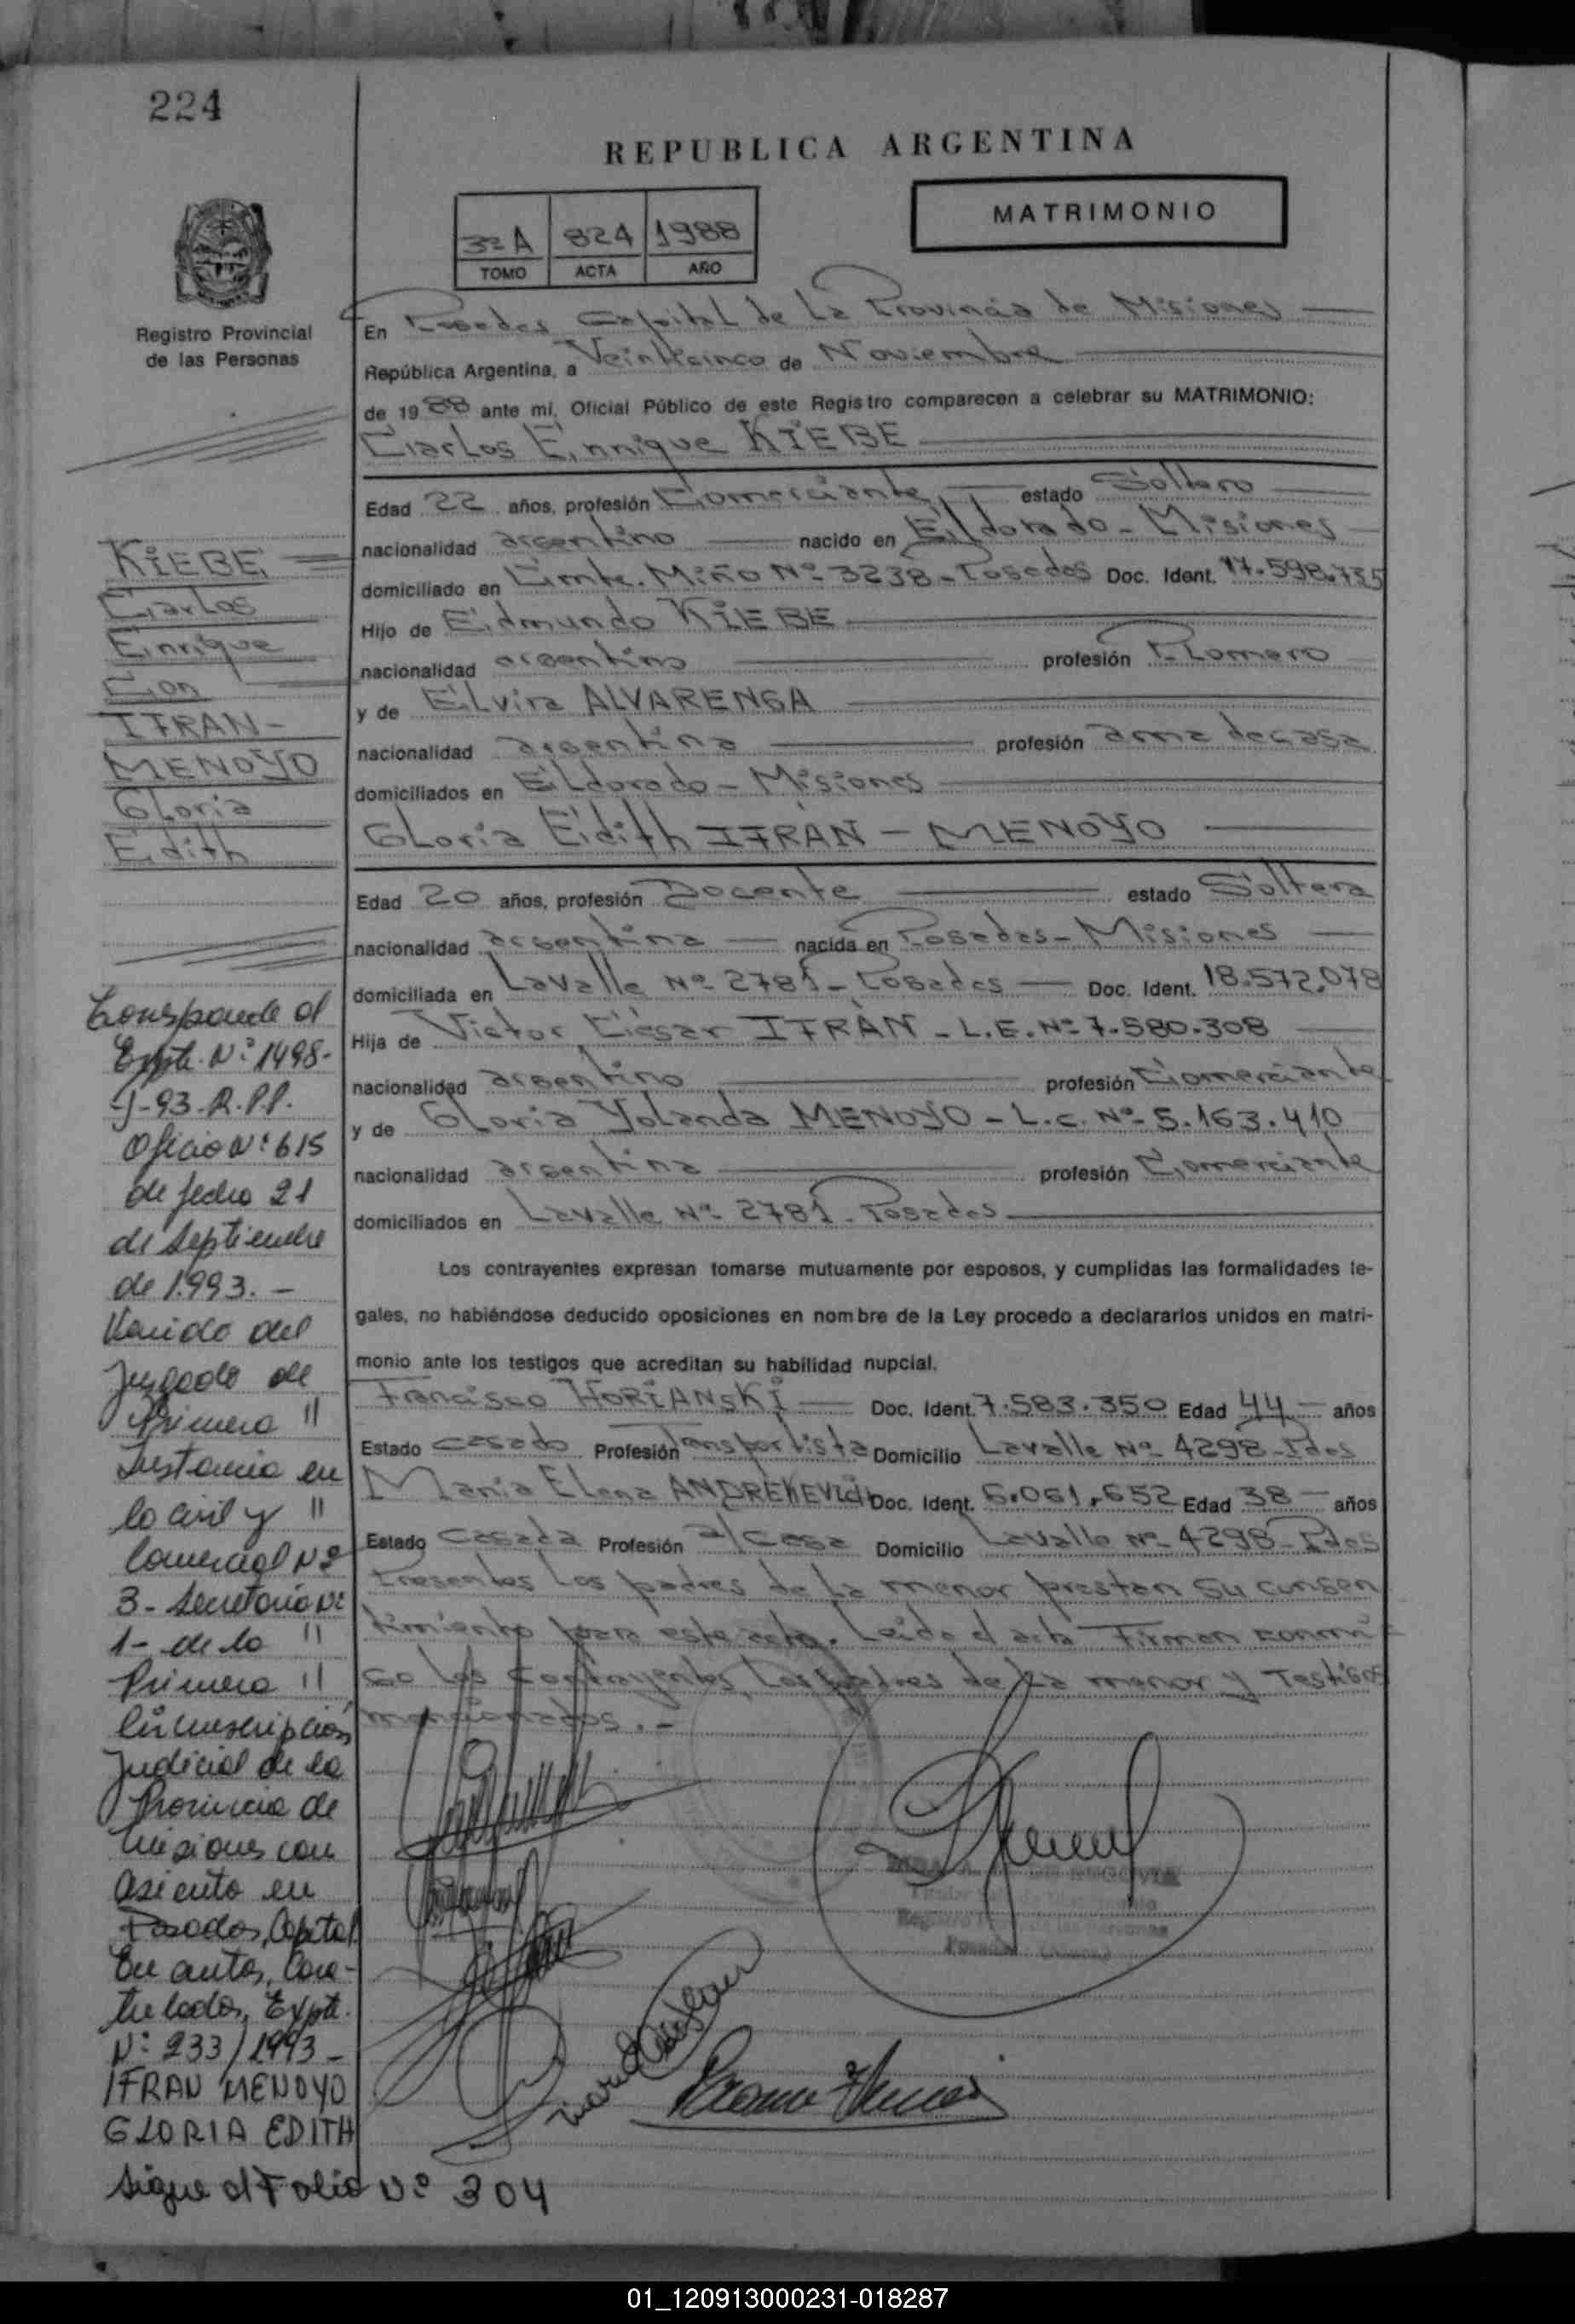 224
REPUBLICA ARGENTINA
MATRIMONIO
3º A 824 1988
TOMO ACTA AÑO
Registro Provincial
de las Personas
En Posadas Capital de La Provincia de Misiones
República Argentina, a Veinticinco de Noviembre
de 1988 ante mí, Oficial Público de este Registro comparecen a celebrar su MATRIMONIO:
Carlos Enrique KIEBE
Edad 22 años, profesión Comerciante estado Soltero
nacionalidad argentino nacido en Eldorado - Misiones
domiciliado en Cmte. Miño Nº 3238 - Posadas Doc. Ident. 17.598.735
Hijo de Edmundo KIEBE
nacionalidad argentino profesión Plomero
y de Elvira ALVARENGA
nacionalidad argentina profesión ama de casa
domiciliados en Eldorado - Misiones
Gloria Edith IFRAN - MENOYO
Edad 20 años, profesión Docente estado Soltera
nacionalidad argentina nacida en Posadas - Misiones
domiciliada en Lavalle Nº 2781 - Posadas Doc. Ident. 18.572.078
Hija de Victor César IFRÁN - L.E. Nº 7.580.308
nacionalidad argentino profesión Comerciante
y de Gloria Yolanda MENOYO - L.C. Nº 5.163.410
nacionalidad argentina profesión Comerciante
domiciliados en Lavalle Nº 2781 - Posadas
Los contrayentes expresan tomarse mutuamente por esposos, y cumplidas las formalidades le-
gales, no habiéndose deducido oposiciones en nombre de la Ley procedo a declararlos unidos en matri-
monio ante los testigos que acreditan su habilidad nupcial.
Francisco HORIANSKI Doc. Ident. 7.583.350 Edad 44 años
Estado casado Profesión Transportista Domicilio Lavalle Nº 4298 - Pdas
Maria Elena Doc. Ident. 6.061.652 Edad 38 años
Estado Casada Profesión a/casa Domicilio Lavalle Nº 4298 - Pdas
Presentes los padres de la menor prestan su consen
timiento para este acto. Leída el acta Firman conmi
go los contrayentes, los padres de la menor y Testigos
mencionados. -
KIEBE
Carlos
Enrique
Con
IFRAN -
MENOYO
Gloria
Edith
Corresponde al
Expte. Nº 1498-
J-93-R.P.P.
Oficio Nº 615
de fecha 21
de Septiembre
de 1.993. -
Venido del
Juzgado de
Primera "
Instancia en
lo Civil y "
Comercial Nº
3 - Secretaría Nº
1 - de la "
Primera "
Circunscripción
Judicial de la
Provincia de
Misiones con
Asiento en
Posadas, Capital
En autos, Cara-
tulados, Expte.
Nº 233/1993 -
IFRAN MENOYO
GLORIA EDITH
Sigue al Folio Nº 304
01_120913000231-018287